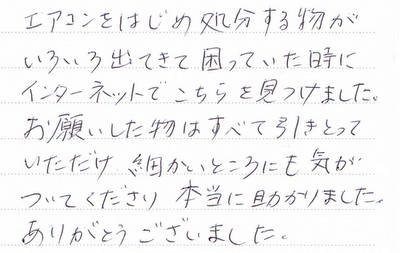 エアコンをはじめ処分する物が
いろいろ出てきて困っていた時に
インターネットでこちらを見つけました。
お願いした物はすべて引きとって
いただけ 細かいところにも気が
ついてくださり 本当に助かりました。
ありがとうございました。